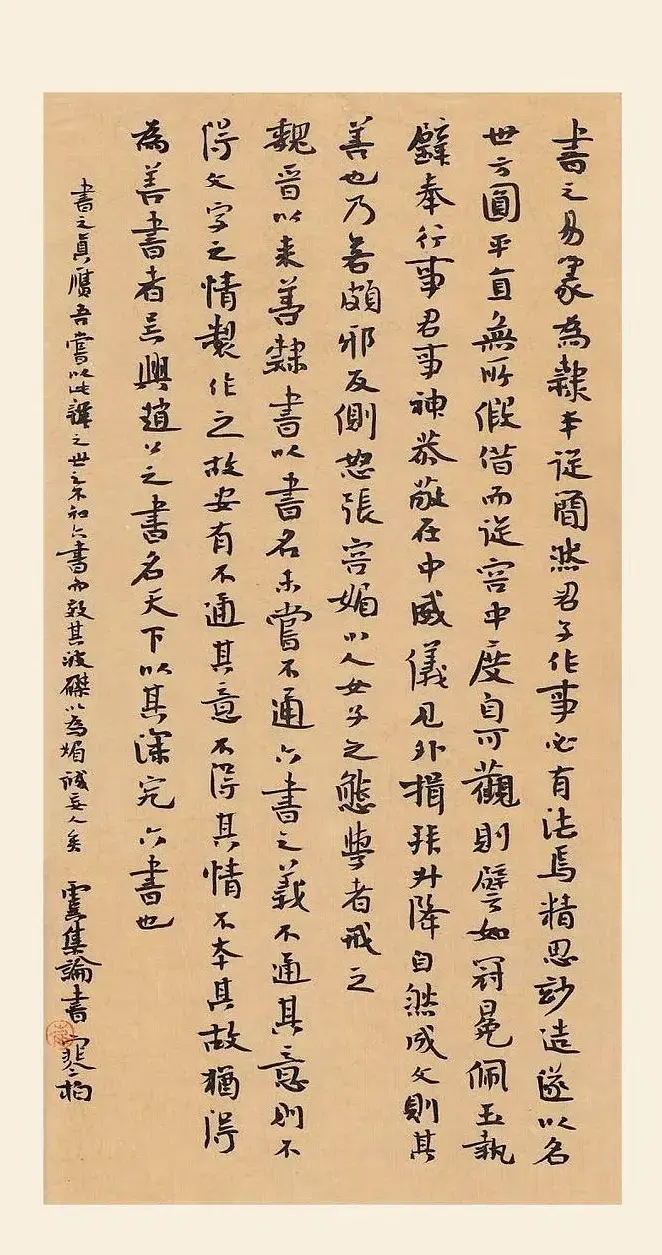 書之易篆為隸本從簡然君子作事必有法焉精思妙造遂以名
世方圓平直無所假借而從容中度自可觀則譬如冠冕佩玉執
奉行事君事神恭敬在中威儀見外揖升降自然成文則其
善也乃若頗邪反側怒張容媚以人女子之態學者戒之
魏晉以來善隸書以書名未嘗不通六書之義不通其意則不
得文字之情製作之故安有不通其意不得其情不本其故猶得
為善書者吳興趙公之書名天下以其深究六書也
書之真贗吾嘗以此辨之世之不知六書而效其波磔以為媚誠妄人矣
虞集論書